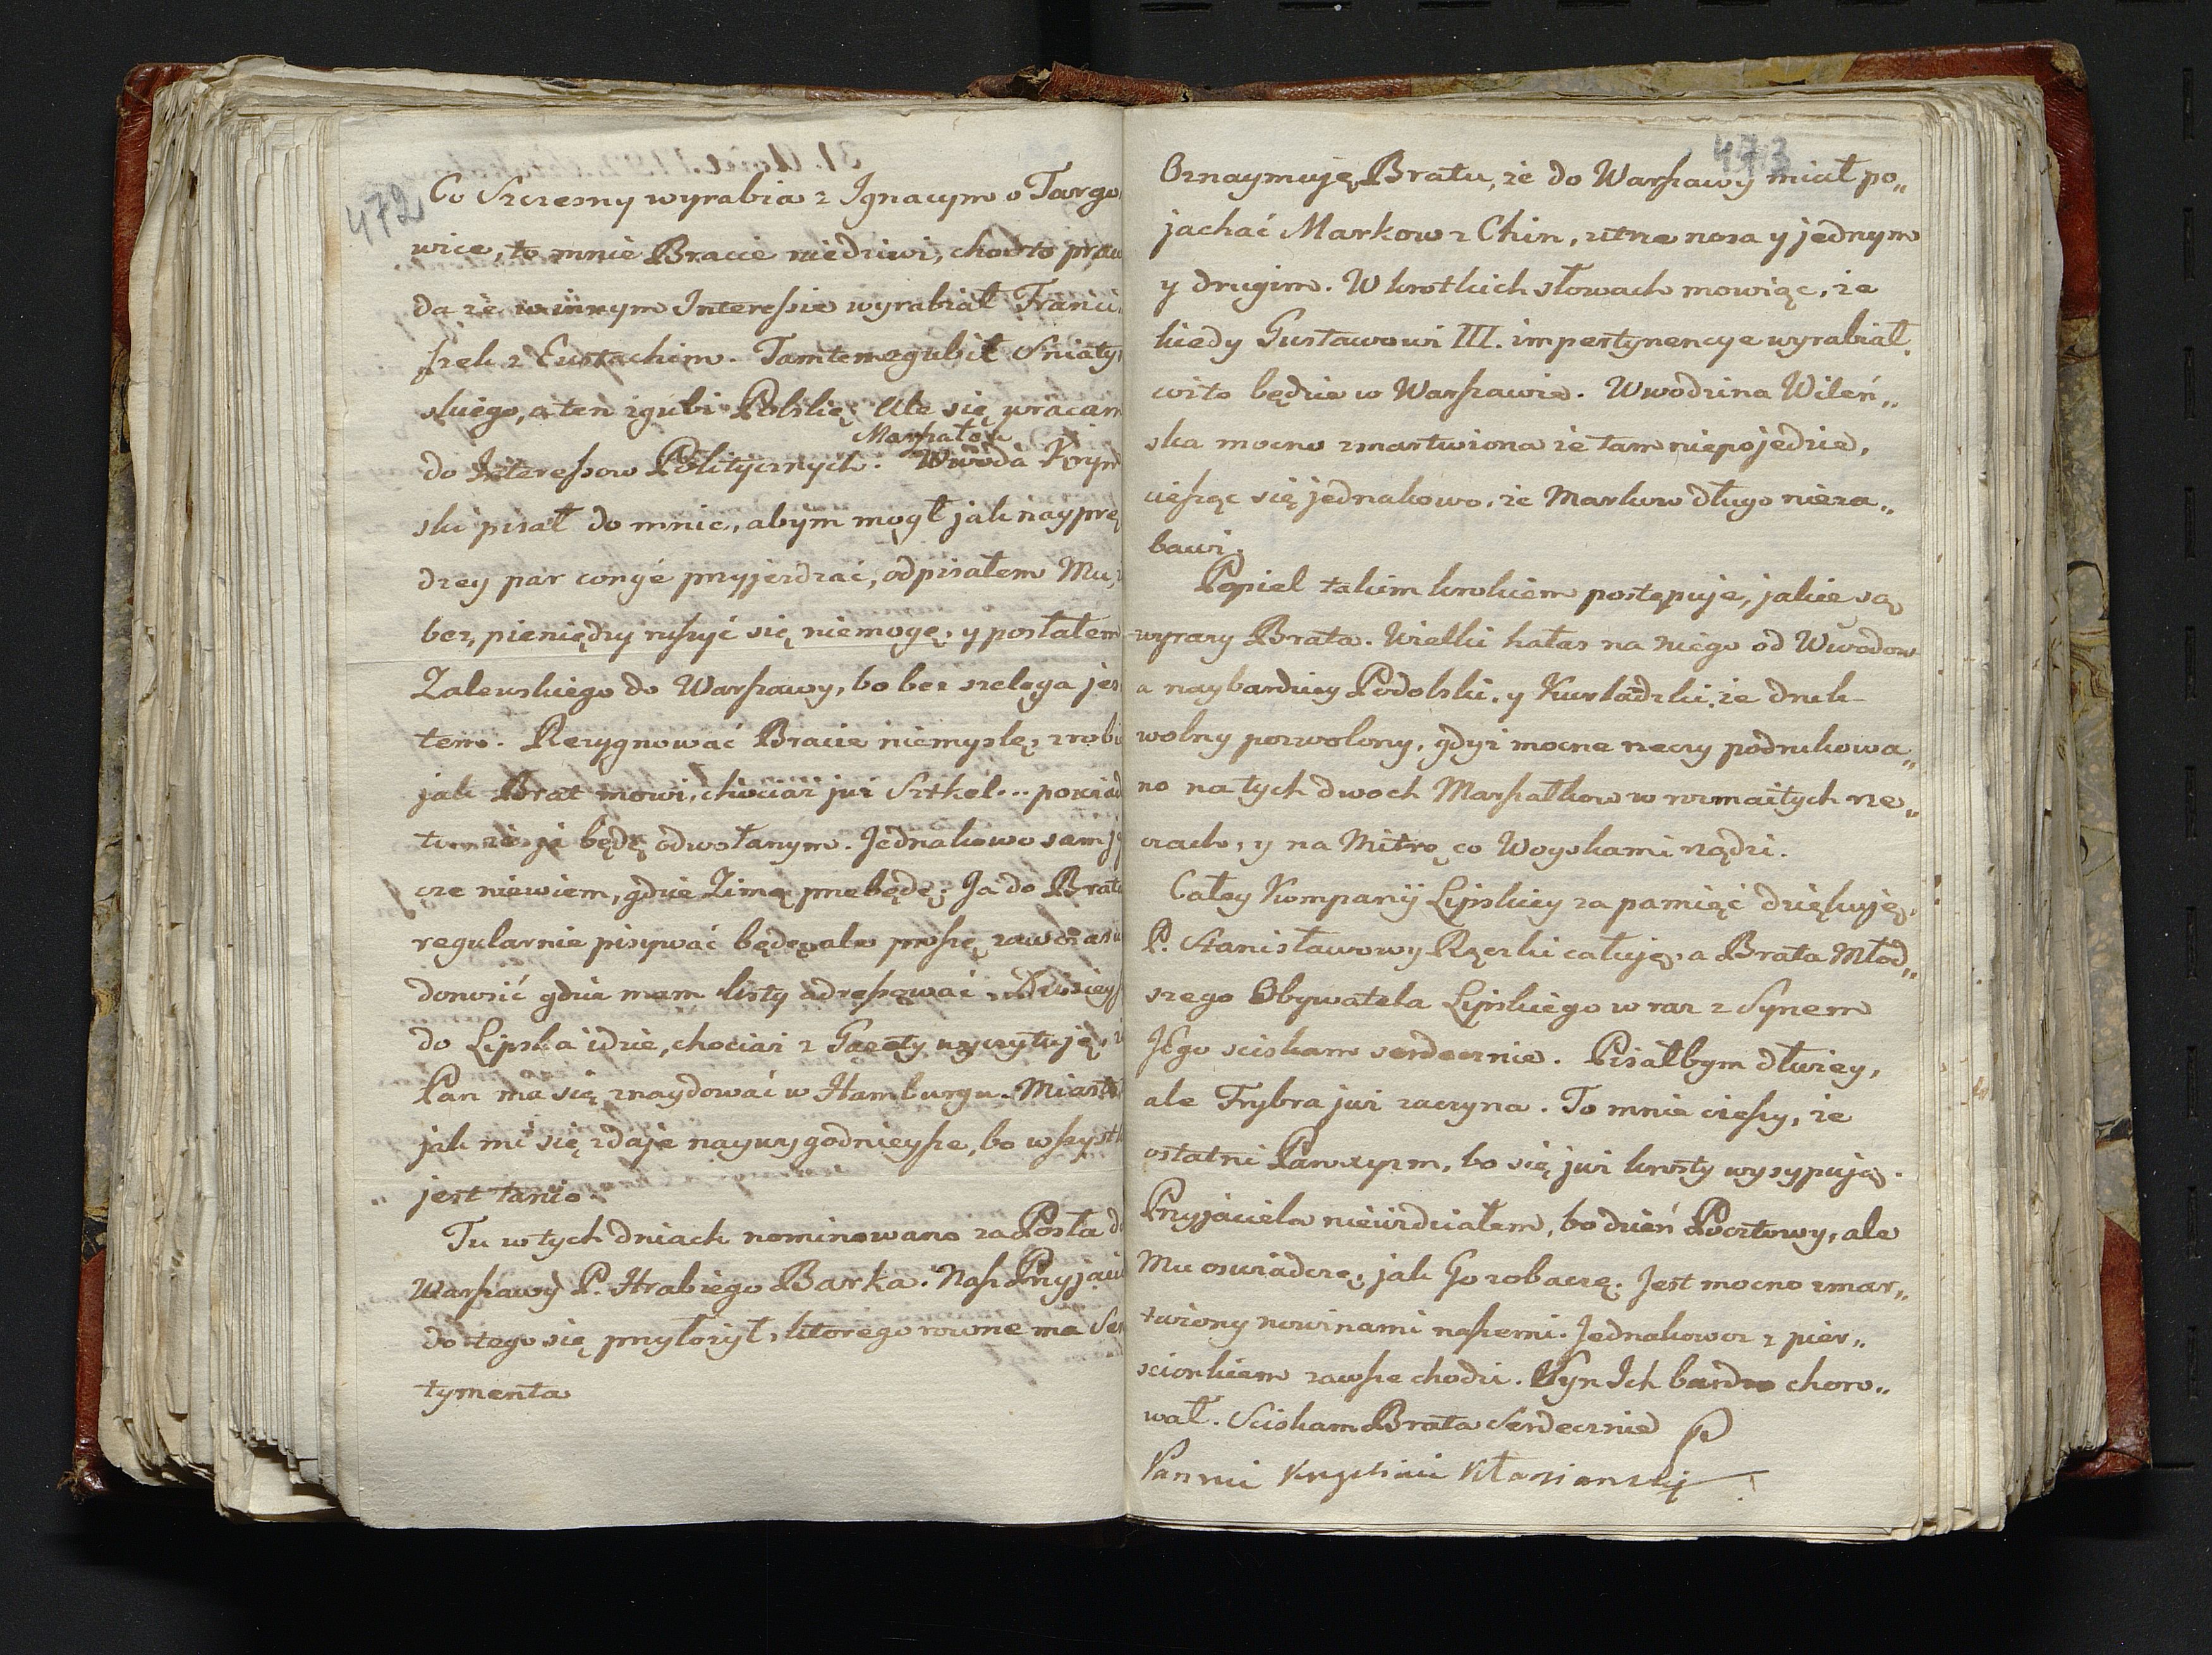 472
Co Szczesny wyrabia z Ignacym o Targo
wice, to mnie Bracie niedziwi, choć to praw
da że w innym Interessie wyrabiał Franci
szek z Eustachim. Tamten zgubił Sniatyń
skiego, a ten zgubi Polskię. Ale się wracam
Marszałek
do Interessow Politycznych. Wwoda Kryn
ski pisał do mnie, abym mogł jak nayprę
dzey par congé przyjezdzać, odpisałem Mu,
bez pieniędzy ruszyć się niemogę, y posłałem
Zalewskiego do Warszawy, bo bez szeloga jes
tem. Rezygnować Bracie niemyslę, zrobię
jak Brat mowi, chociaż już Sztkel... powiad
tu że ja będę odwołanym. Jednakowo sam je
cze niewiem, gdzie Zimę przebędę; Ja do Brata
regularnie pisywać będę, ale proszę zawczasu
donosić gdzie mam listy adressować. Dzisieysz
do Lipska idzie, chociaż z Gazety wyczytuję, ż
Pan ma się znaydować w Hamburgu. Miasto
jak mi się zdaje naywygodnieysze, bo wszystk
jest tanio.
Tu w tych dniach nominowano za Posła do
Warszawy P. Hrabiego Barka. Nasz Przyjaciel
do tego się przyłożył, ktorego rowne ma Sen
tymenta
473
Oznaymuję Bratu, że do Warszawy miał po„
jachać Markow z Chin, utrze nosa y jednym
y drugim. W krotkich słowach mowiąc, że
kiedy Gustawowi III. impertynencye wyrabiał,
coż to będzie w Warszawie. Wwodzina Wileń„
ska mocno zmartwiona że tam niepojedzie,
ciesząc się jednakowo, że Markow długo nieza„
bawi.
Popiel takim krokiem postępuje, jakie są
wyrazy Brata. Wielki hałas na niego od Wwodow
a naybardziey Podolski, y Kurladzki, że druk
wolny pozwolony, gdyż mocne rzeczy podrukowa„
no na tych dwoch Marszałkow w rozmaitych rze„
czach, y na Mitrę co Woyskami rządzi.
Całey Kompanij Lipskiey za pamięć dziękuję,
P. Stanisławowy Rączki całuję, a Brata Młod„
szego Obywatela Lipskiego w raz z Synem
Jego sciskam serdecznie. Pisałbym dłużey,
ale Frybra już zaczyna. To mnie cieszy, że
ostatni Paroxyzm, bo się już krosty wysypują.
Przyjaciela niewidziałem, bo dzień Pocztowy, ale
Mu oswiadczę, jak Go zobaczę. Jest mocno zmar„
twiony nowinami naszemi. Jednakowoz z pier„
scionkiem zawsze chodzi. Syn Ich bardzo choro„
wał. Sciskam Brata Serdecznie